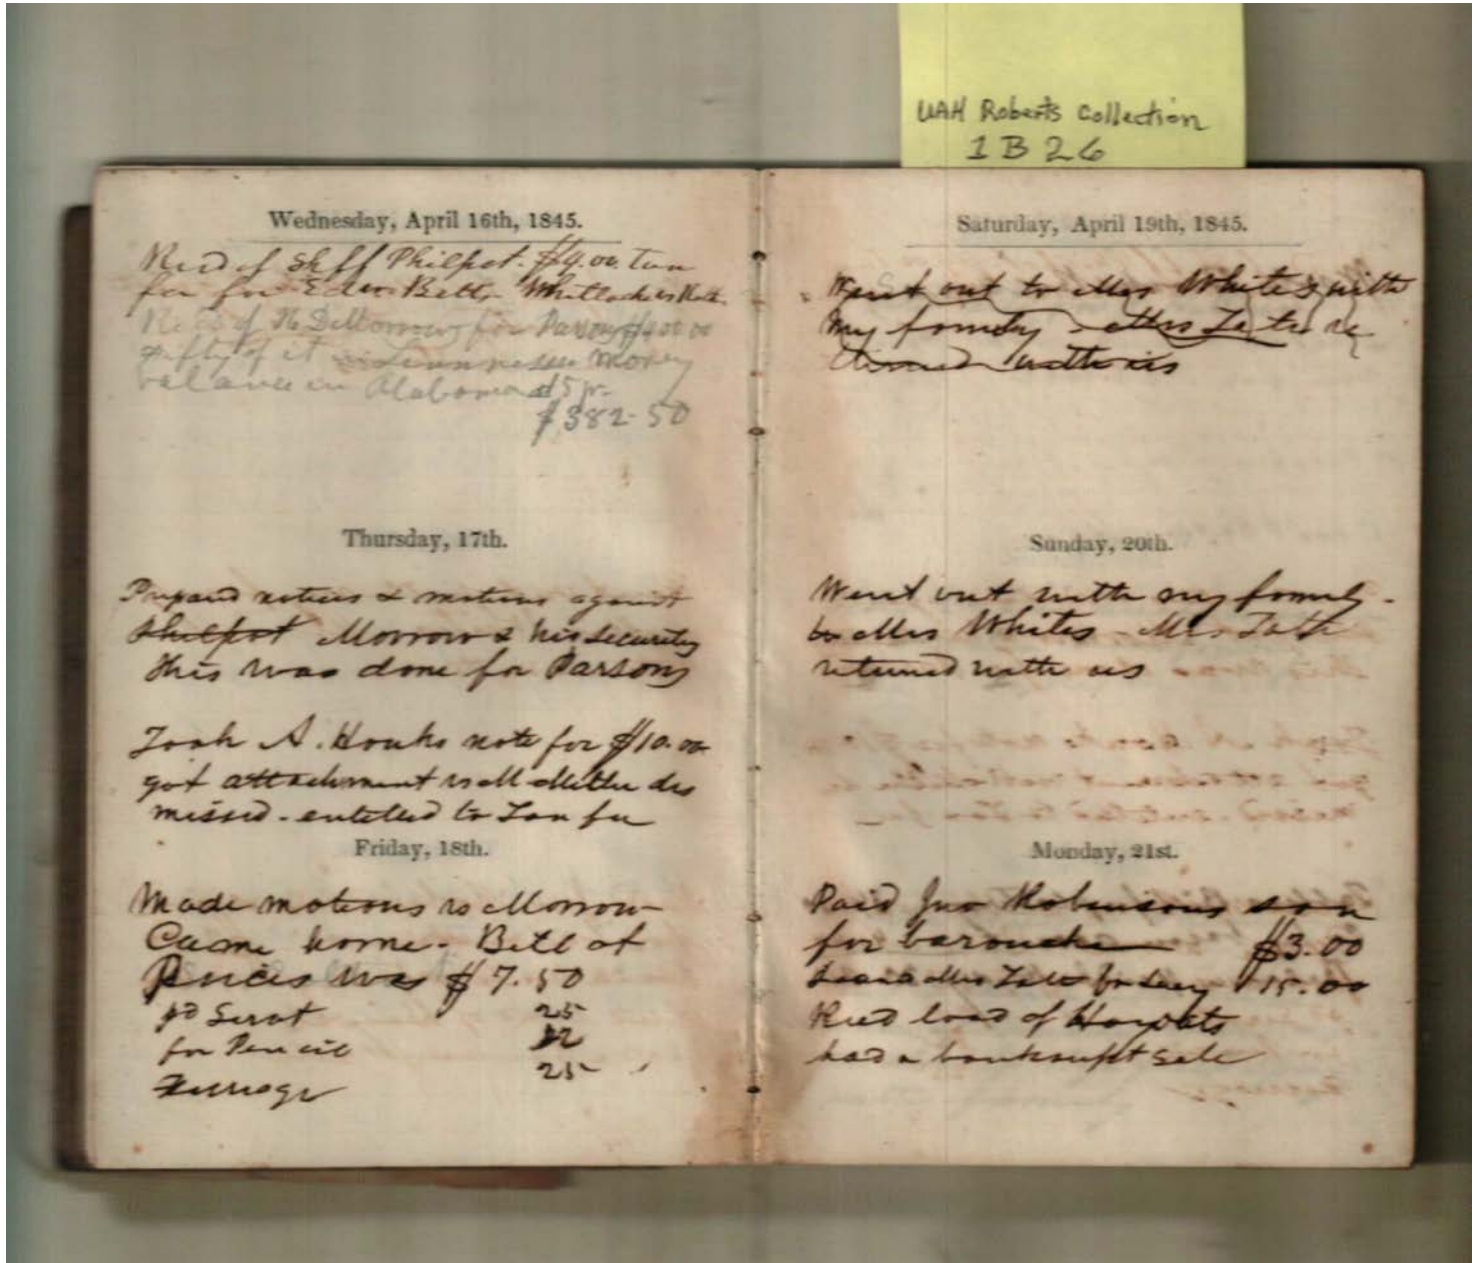 UAH Roberts Collection
1B26
Wednesday, April 16th, 1845.
Recd of Shff Philpot. $9.00 Tax
fee for Edw Betts Whitlock vs
Recd of H D Morrow for Parsons $400 00
fifty of it in Tennessee Money
balance in Alabama 15 pr.
$382.50
Thursday, 17th.
Prepard notices & motions against
Philpot Morrow & his Security
this was done for Parsons
Took A. Houks note for $10.00
got attachment vs M Miller dis
missed - entitled to Tax fee
Friday, 18th.
Made motions vs Morrow
Came home. Bill at
Prices was $7.50
pd Servt 25
for Pencil 12
Ferriage 25
Saturday, April 19th, 1845.
Went out to Mrs Whites with
my family - Mrs Tate re
turned with us
Sunday, 20th.
Went out with my family -
to Mrs Whites - Mrs Tate
returned with us
Monday, 21st.
Paid Jno Robinsons son
for barouche $3.00
Mrs Tate for Lucy 15.00
Recd load of Hay
had a bankrupt sale